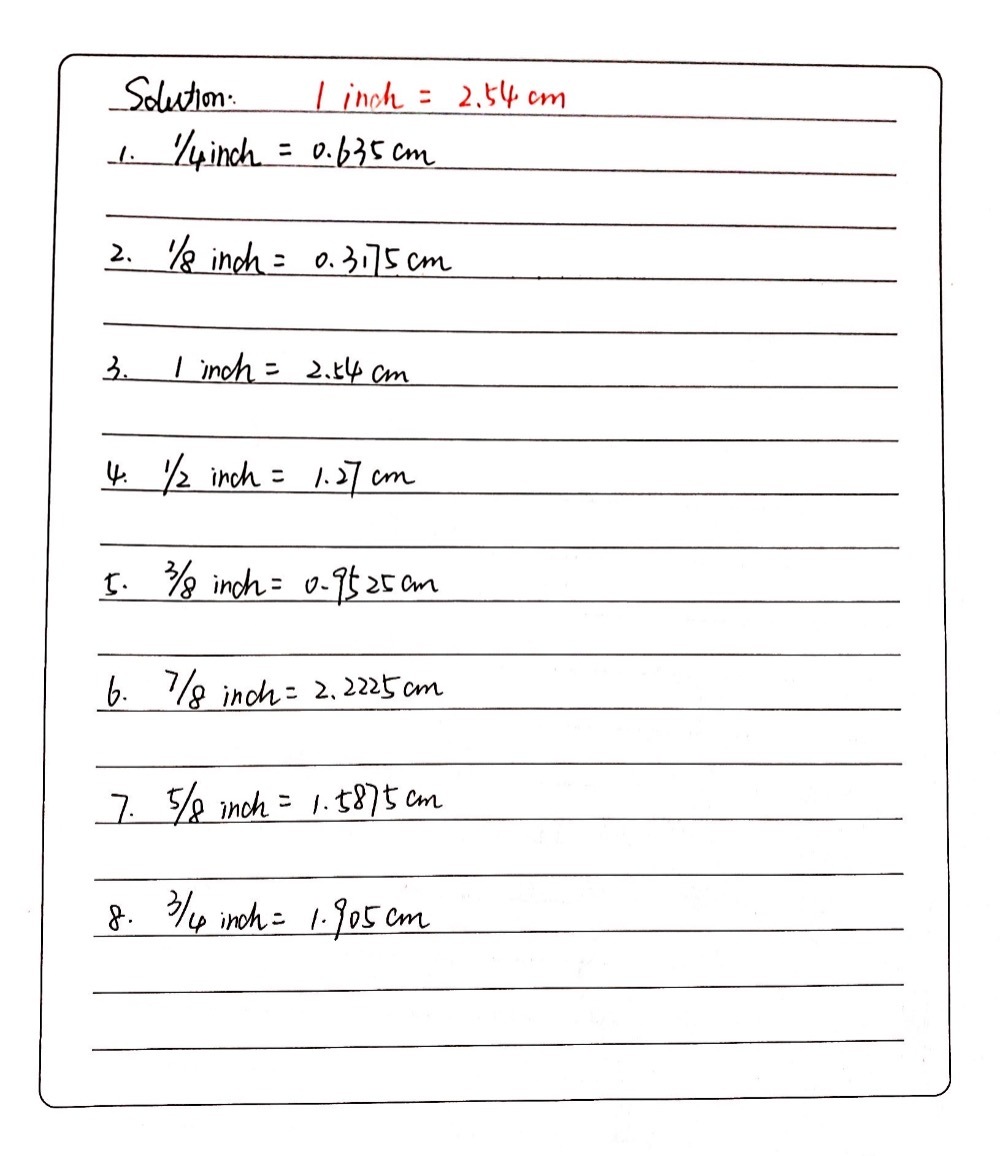 Solution: 1 inch = 2.54 cm
1. 1/4 inch = 0.635 cm
2. 1/8 inch = 0.3175 cm
3. 1 inch = 2.54 cm
4. 1/2 inch = 1.27 cm
5. 3/8 inch = 0.9525 cm
6. 7/8 inch = 2.2225 cm
7. 5/8 inch = 1.5875 cm
8. 3/4 inch = 1.905 cm